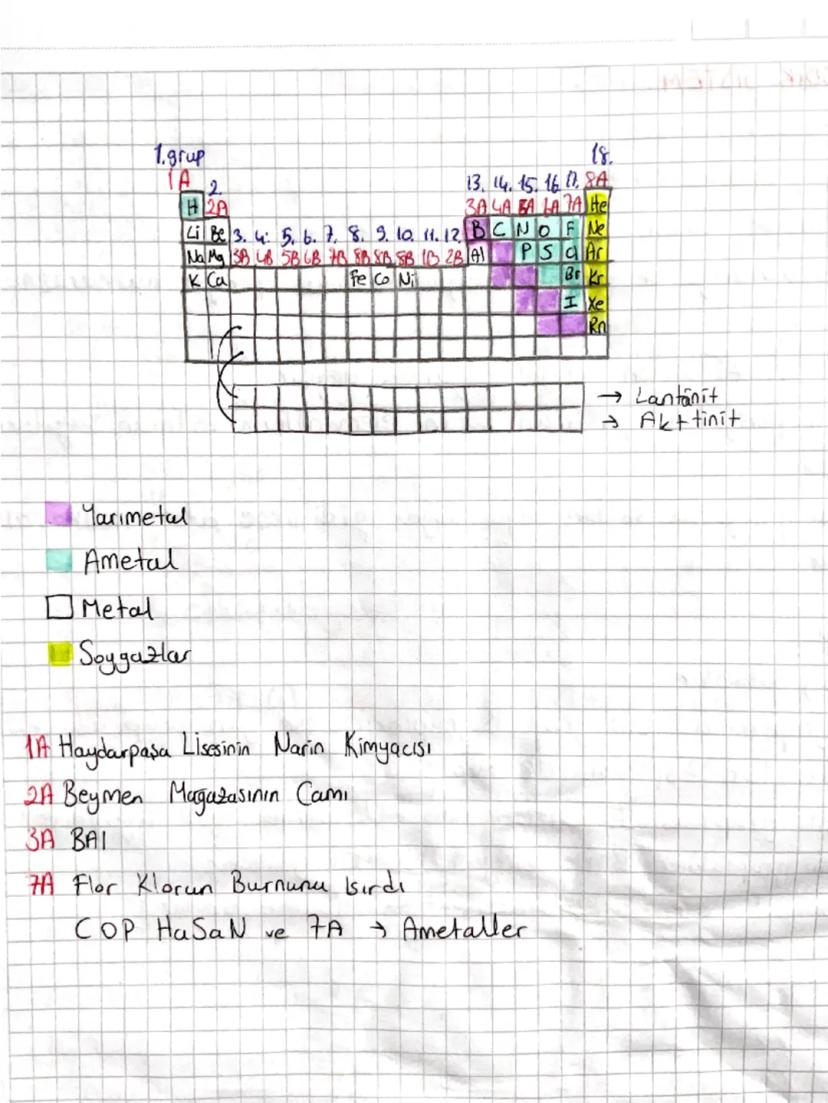 1.grup 18.
1A 2. 13. 14. 15. 16. 17. 8A
H 2A 3A 4A 5A 6A 7A He
Li Be 3. 4. 5. 6. 7. 8. 9. 10. 11. 12. B C N O F Ne
Na Mg 3B 4B 5B 6B 7B 8B 8B 8B 1B 2B Al P S Cl Ar
K Ca Fe Co Ni Br Kr
I Xe
Rn
→ Lantanit
→ Akttinit
Yarımetal
Ametal
Metal
Soygazlar
1A Haydarpaşa Lisesinin Narin Kimyacısı
2A Beymen Magazasının Camı
3A BAl
7A Flor Klorun Burnunu Isırdı
COP HaSaN ve 7A → Ametaller